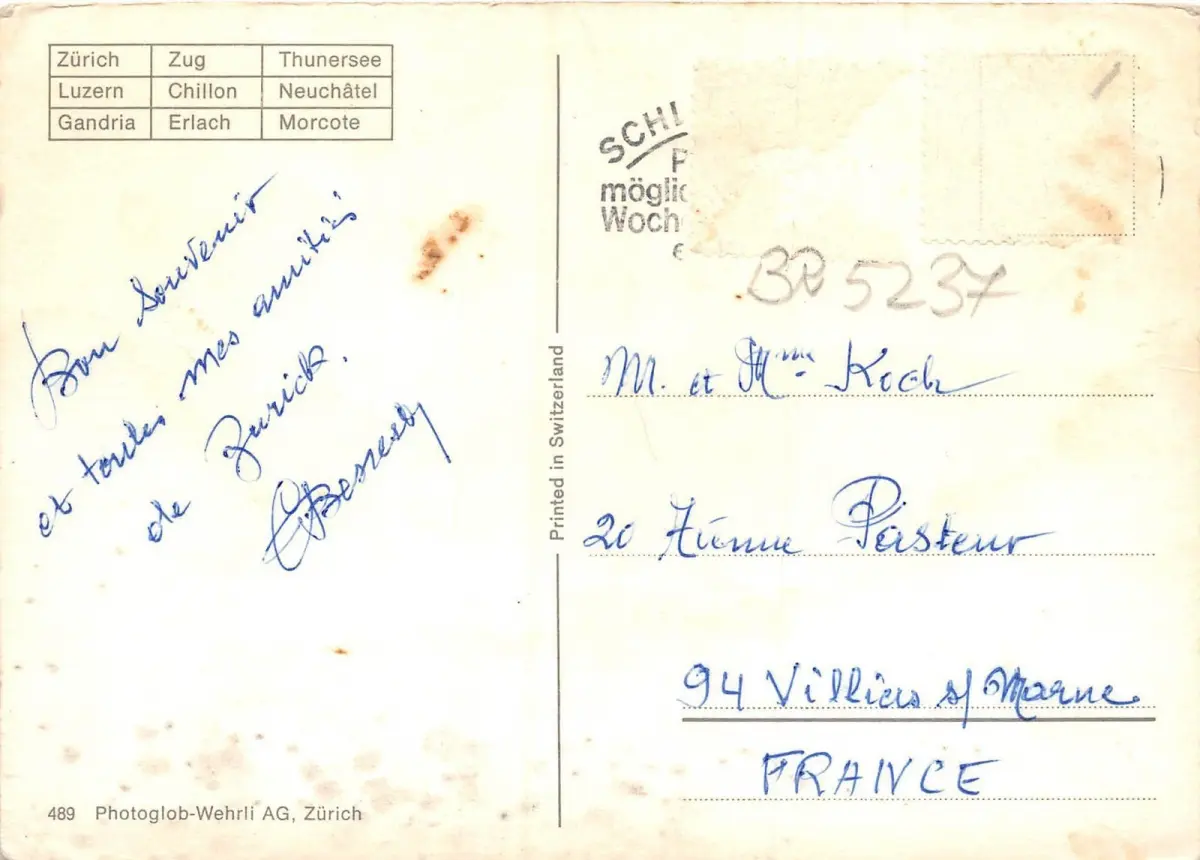 Zürich Zug Thunersee
Luzern Chillon Neuchâtel
Gandria Erlach Morcote
Bon Souvenir
et toutes mes amitiés
de Zurich.
SCHL
P
möglic
Woch
e
BR 5237
M. et Mme Koch
20 Avenue Pasteur
94 Villiers s/ Marne
FRANCE
Printed in Switzerland
489 Photoglob-Wehrli AG, Zürich